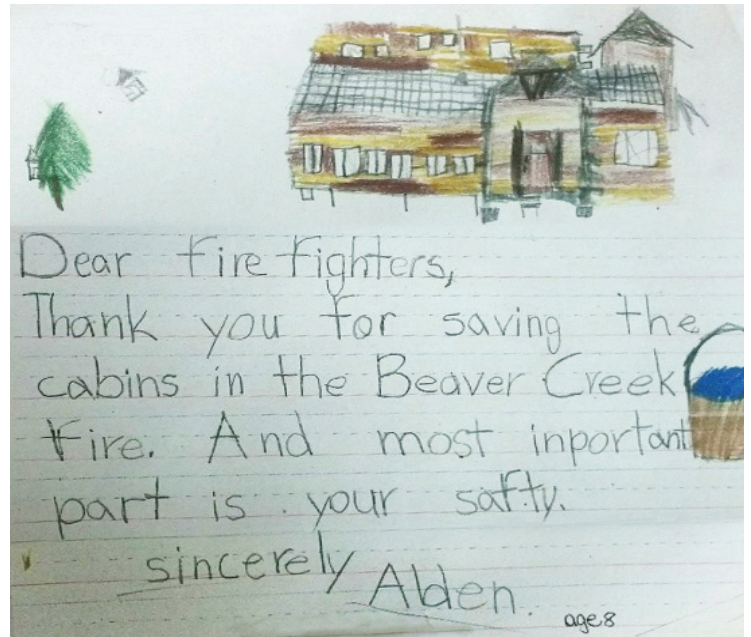 Dear firefighters,
Thank you for saving the
cabins in the Beaver Creek
Fire. And most inportant
part is your safty.
sincerely Alden.
age 8